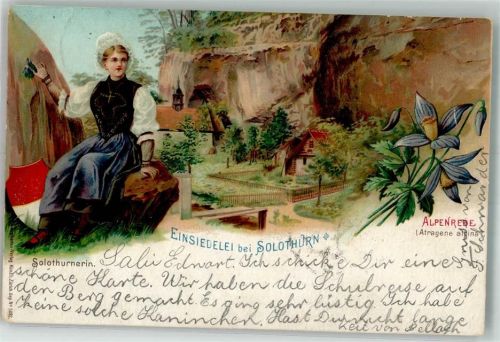 EINSIEDELEI bei SOLOTHURN
ALPENREBE
(Atragene alpina)
Solothurnerin.
Sali Edwart. Ich schicke Dir eine
schöne Karte. Wir haben die Schulreise auf
den Berg gemacht. Es ging sehr lustig. Ich habe
keine solche Kaninchen. Hast Du nicht lange
Zeit von Bellach